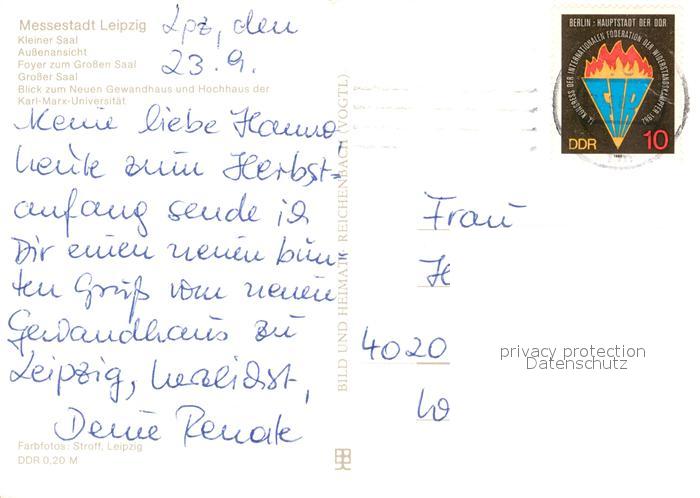 Messestadt Leipzig
Kleiner Saal
Außenansicht
Foyer zum Großen Saal
Großer Saal
Blick zum Neuen Gewandhaus und Hochhaus der
Karl-Marx-Universität
Lpz, den
23. 9.
Meine liebe Hanna,
heute zum Herbst=
anfang sende ich
Dir einen neuen bun=
ten Gruß vom neuen
Gewandhaus zu
Leipzig, herzlichst,
Deine Renate
Farbfotos: Stroff, Leipzig
DDR 0,20 M
BILD UND HEIMAT REICHENBACH (VOGTL)
BERLIN · HAUPTSTADT DER DDR
IX. KONGRESS DER INTERNATIONALEN FÖDERATION DER WIDERSTANDSKÄMPFER 1982
FIR
DDR 10
1982
Frau
H
4020
W
privacy protection
Datenschutz